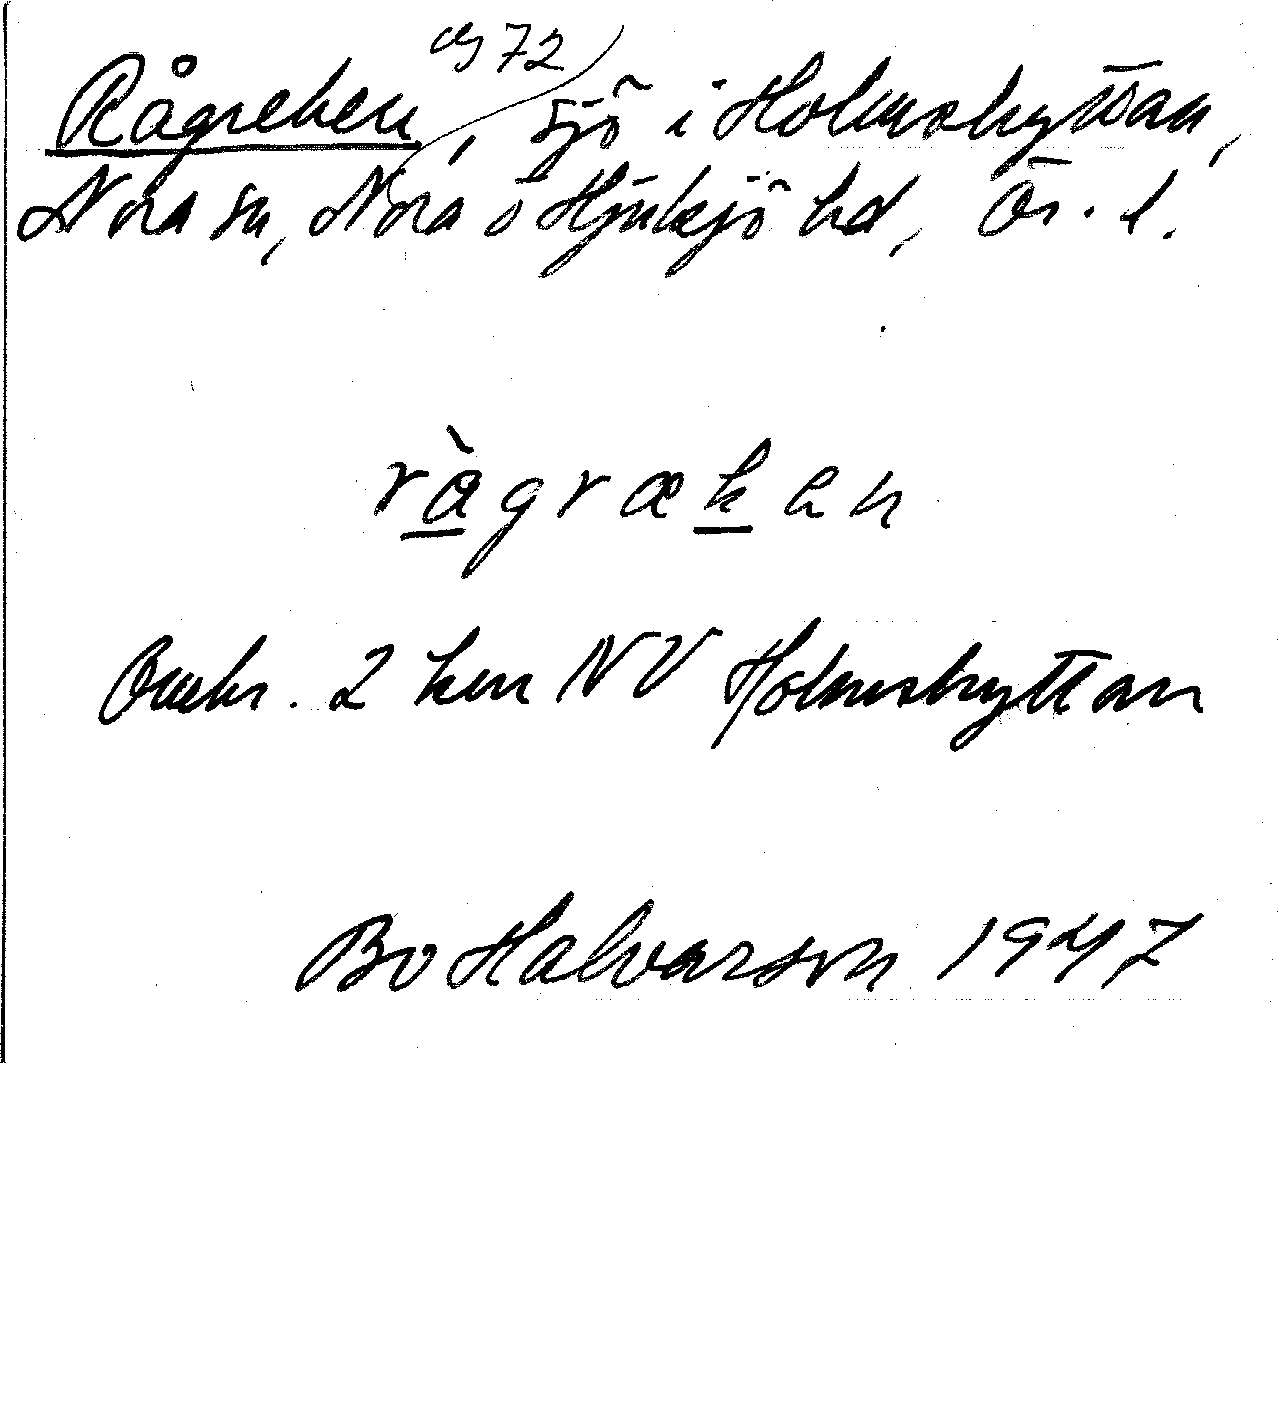 72
Rågreken, sjö i Holmshyttan,
Nora sn, Nora o Hjulsjö hd, Ör. l.
rågrækan
Omkr. 2 km NV Holmshyttan
Bo Halvarson 1947